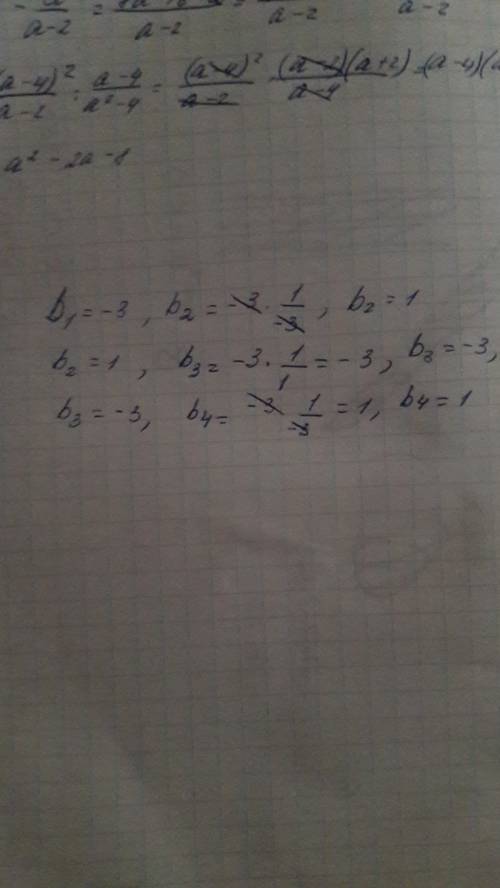 a-2 = a-2 = a-2 a-2
(a-4)²/a-2 : a-4/a²-4 = (a-4)²/a-2 · (a-2)(a+2)/a-4 = (a-4)(a
a² - 2a - 8
b₁ = -3, b₂ = -3 · 1/-3, b₂ = 1
b₂ = 1, b₃ = -3 · 1/1 = -3, b₃ = -3,
b₃ = -3, b₄ = -3 · 1/-3 = 1, b₄ = 1